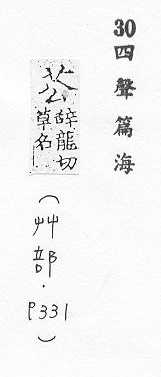 30四聲篇海
辭龍切
草名
（艸部．P331）